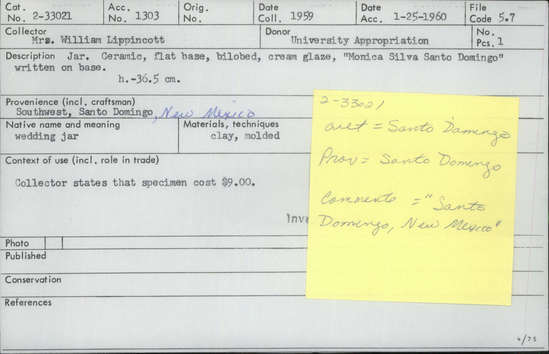 Cat. No. 2-33021 Acc. No. 1303 Orig. No. Date Coll. 1959 Date Acc. 1-25-1960 File Code 5.7
Collector Mrs. William Lippincott Donor University Appropriation No. Pcs. 1
Description Jar. Ceramic, flat base, bilobed, cream glaze, "Monica Silva Santo Domingo"
written on base.
h.-36.5 cm.
Provenience (incl. craftsman)
Southwest, Santo Domingo, New Mexico
Native name and meaning
wedding jar
Materials, techniques
clay, molded
Context of use (incl. role in trade)
Collector states that specimen cost $9.00.
Inve
Photo
Published
Conservation
References
4/75
2-33021
cult = Santo Domingo
Prov = Santo Domingo
Comments = "Santo
Domingo, New Mexico"